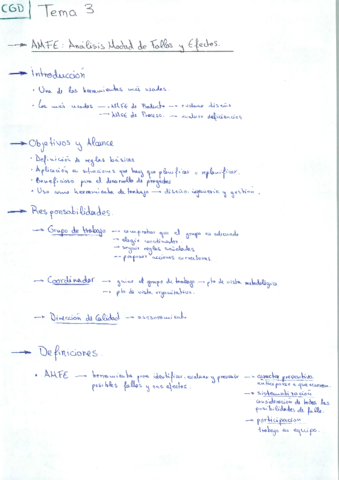 CGD Tema 3
→ AMFE: Análisis Modal de Fallos y Efectos.
→ Introducción
• Una de las herramientas más usadas.
• Las más usadas → AMFE de Producto → evaluar diseño
→ AMFE de Proceso → evaluar deficiencias
→ Objetivos y Alcance
• Definición de reglas básicas.
• Aplicación a situaciones que hay que planificar o replanificar.
• Beneficioso para el desarrollo de proyectos
• Uso como herramienta de trabajo → diseño ingeniería y gestión.
→ Responsabilidades.
→ Grupo de trabajo → comprobar que el grupo es adecuado
→ elegir coordinador
→ seguir reglas
→ proponer acciones correctoras
→ Coordinador → guiar el grupo de trabajo → pto de vista metodológico
→ pto de vista organizativo.
→ Dirección de Calidad → asesoramiento
→ Definiciones
• AMFE → herramienta para identificar, evaluar y prevenir
posibles fallos y sus efectos.
→ carácter preventivo
anticiparse a que ocurran.
→ sistematización
consideración de todas las
posibilidades de fallo.
→ participación
trabajo en equipo.